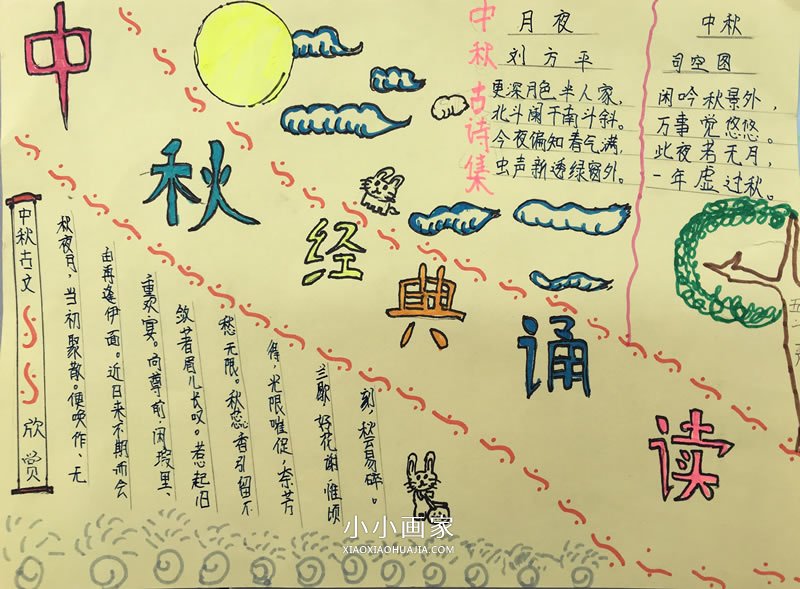 中秋经典诵读
中秋古诗集
月夜
刘方平
更深月色半人家，
北斗闲干南斗斜。
今夜偏知春气满，
虫声新透绿窗外。
中秋
司空图
闲吟秋景外，
万事觉悠悠。
此夜若无月，
一年虚过秋。
中秋古文欣赏
秋夜月，当初聚散。便唤作、无
由再逢伊面。近日来不期而会
重欢宴。向尊前，闲暇里、
敛着眉儿长叹。惹起旧
愁无限。秋蕊香引留不
得，光限唯促，奈芳
兰歇，好花谢，惟顷
刻，云易碎。
小小画家
XIAOXIAOHUAJIA.COM